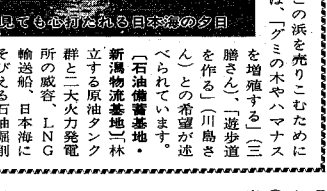 見ても心打たれる日本海の夕日
この浜を売りこむために
は、「グミの木やハマナス
を増殖する」(三
膳さん)、「遊歩道
を作る」(川島さ
ん)との希望が述
べられています。
〔石油備蓄基地・
新潟物流基地〕林
立する原油タンク
群と二大火力発電
所の威容、LNG
輸送船、日本海に
そびえる石油掘削